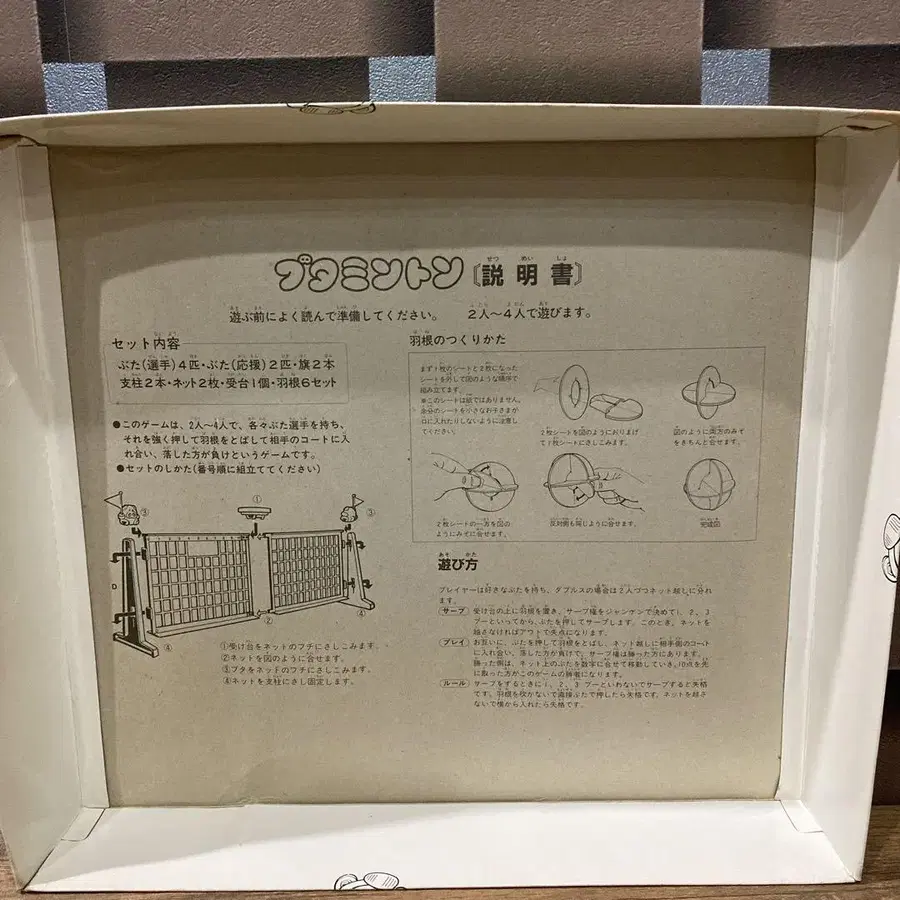 ブタミントン〔説明書〕
遊ぶ前によく読んで準備してください。 2人〜4人で遊びます。
セット内容
ぶた(選手)4匹・ぶた(応援)2匹・旗2本
支柱2本・ネット2枚・受台1個・羽根6セット
●このゲームは、2人〜4人で、各々ぶた選手を持ち、
それを強く押して羽根をとばして相手のコートに入
れ合い、落した方が負けというゲームです。
●セットのしかた(番号順に組立ててください)
①
③
③
②
④
④
①受け台をネットのフチにさしこみます。
②ネットを図のように合せます。
③ブタをネットのフチにさしこみます。
④ネットを支柱にさし固定します。
羽根のつくりかた
まず1枚のシートと2枚になった
シートを外して図のような順序で
組み立てます。
※このシートは紙ではありません。
余分のシートを小さなお子さまが
口に入れたりしないように注意し
てください。
2枚シートを図のようにおりまげ
て1枚シートにさしこみます。
図のように両方のみぞ
をきちんと合せます。
2枚シートの一方を図の
ようにみぞに合せます。
反対側も同じように合せます。
完成図
遊び方
プレイヤーは好きなぶたを持ち、ダブルスの場合は2人づつネット越しに分れ
ます。
サーブ 受け台の上に羽根を置き、サーブ権をジャンケンで決めて1、2、3
ブーといってから、ぶたを押してサーブします。このとき、ネットを
越さなければアウトで失点になります。
プレイ お互いに、ぶたを押して羽根をとばし、ネット越しに相手側のコート
に入れ合い、落した方が負けで、サーブ権は勝った方にあります。
勝った側は、ネット上のぶたを数字に合せて移動していき、10点を先
に取った方がこのゲームの勝者になります。
ルール サーブをするときに1、2、3ブーといわないでサーブすると失格
です。羽根を吹かないで直接ぶたで押したら失格です。ネットを越さ
ないで横から入れたら失格です。